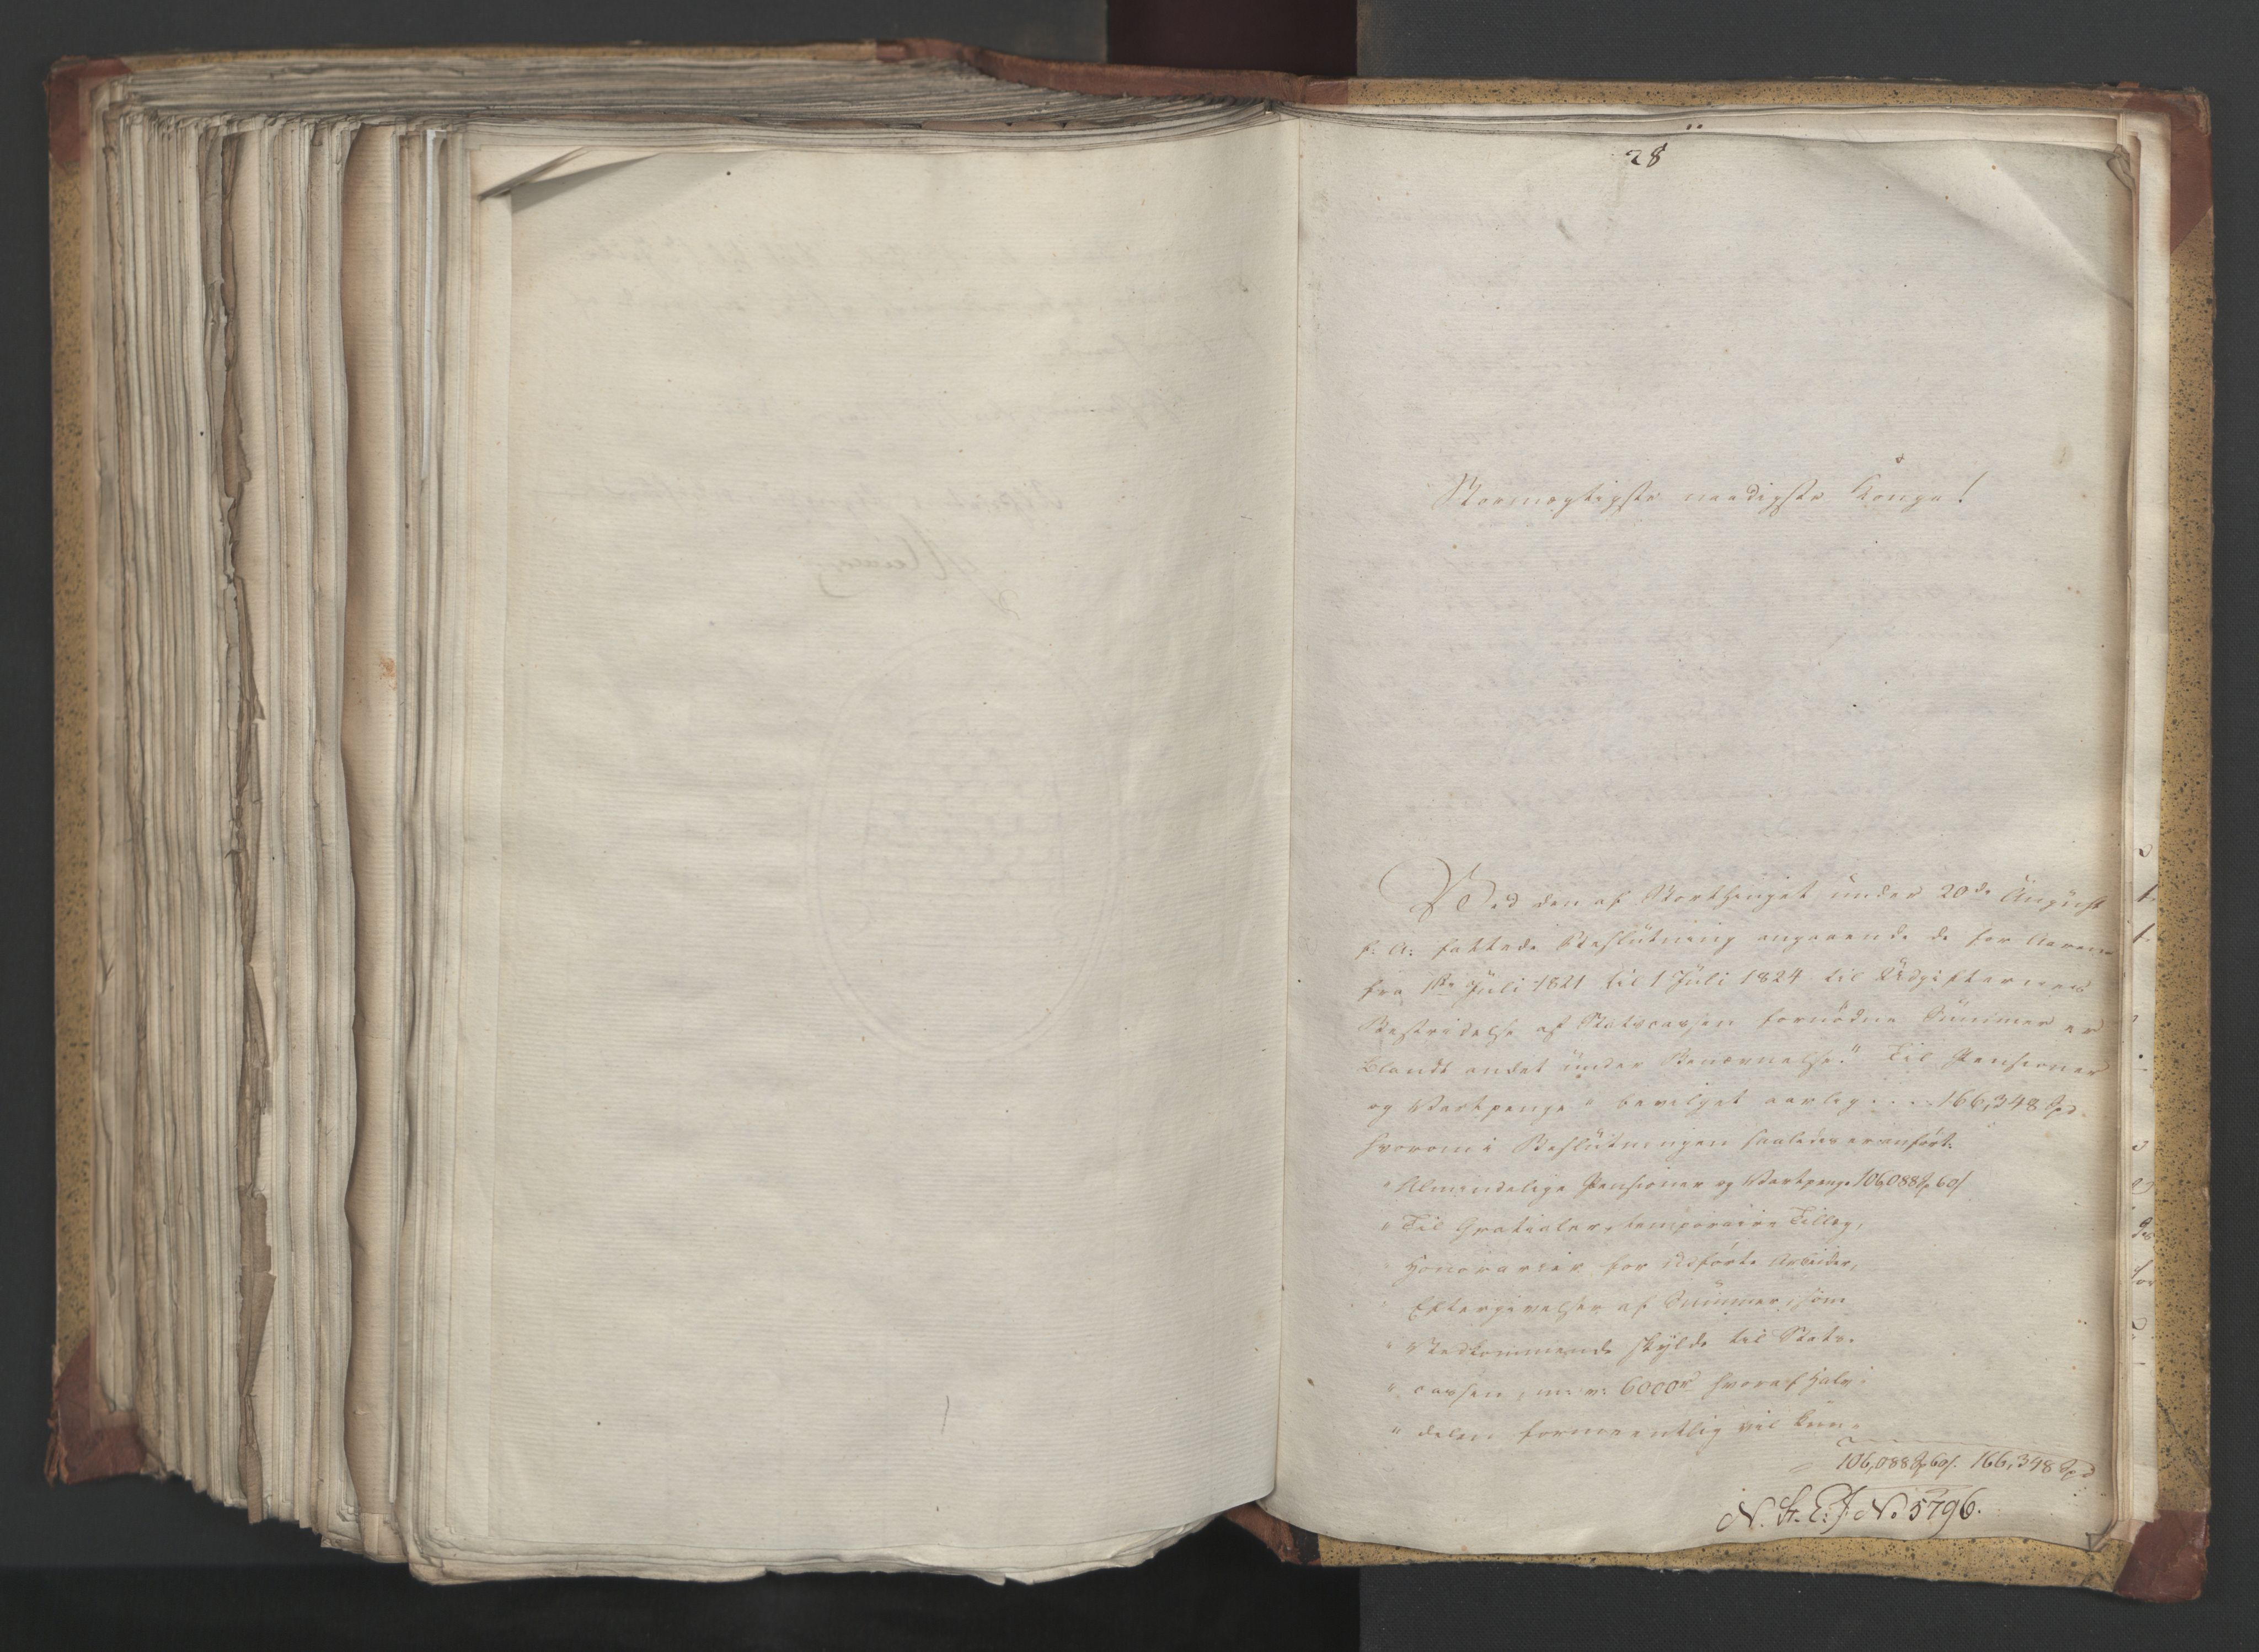 28
Stormægtigste naadigste Konge!
Ved den af Storthinget under 20de August
f: A: fattede Beslutning angaaende de for Aarene
fra 1ste Juli 1821 til 1 Juli 1824 til Udgifternes
Bestridelse af Statscassen fornødne Summer er
blandt andet under Benævnelse: "Til Pensioner
og Vartpenge" bevilget aarlig .... 166,348 Spd.
hvorom i Beslutningen saaledes er anført:
"Almindelige Pensioner og Vartpenge 106,088 Sp 60 s
"Til Gratialer, temporaire Tillæg,
Honorarier for udførte Arbeider,
Eftergivelser af Summer, som
" Vedkommende skylde til Stats-
" cassen, m: v: 6000 hvoraf Halv-
" delen formeentlig vil kun-
106,088 Sp 60 s. 166,348 Spd
N. St. E: J. No 5796.